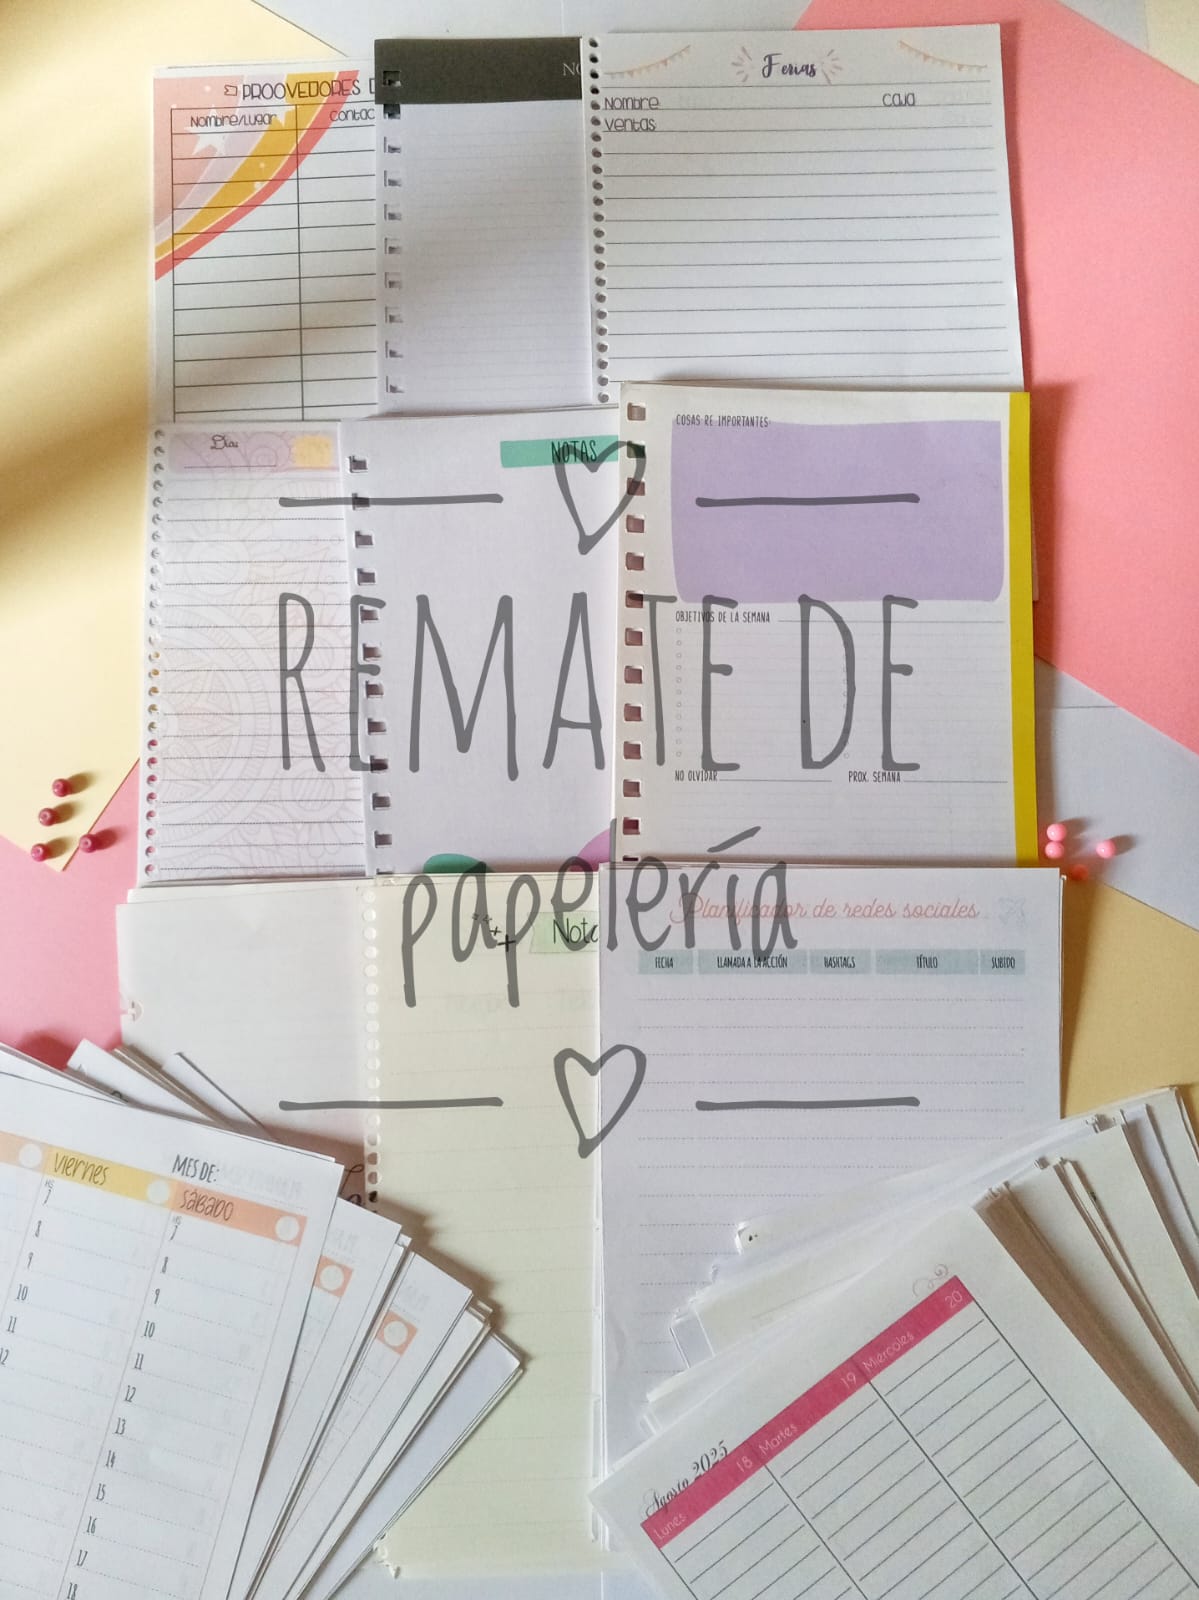 PROOVEDORES
Nombre/Lugar
Ferias
Nombre
Caja
Ventas
Día:
NOTAS
COSAS RE IMPORTANTES:
OBJETIVOS DE LA SEMANA
NO OLVIDAR
PROX. SEMANA
REMATE DE
papelería
Planificador de redes sociales
FECHA
LLAMADA A LA ACCIÓN
HASHTAGS
TÍTULO
SUBIDO
viernes
MES DE:
sábado
HS
7
8
9
10
11
12
HS
7
8
9
10
11
12
13
14
15
16
17
18
Agosto 2025
Lunes 18
Martes 19
Miercoles 20